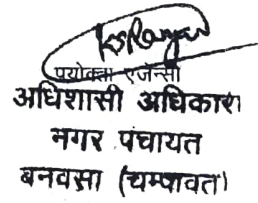 प्रयोक्ता एजेन्सी
अधिशासी अधिकारी
नगर पंचायत
बनवसा (चम्पावत)